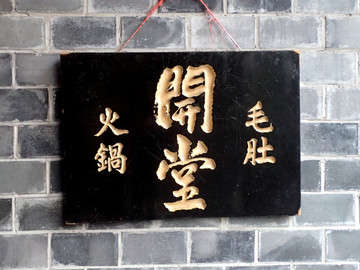 毛肚
開堂
火鍋